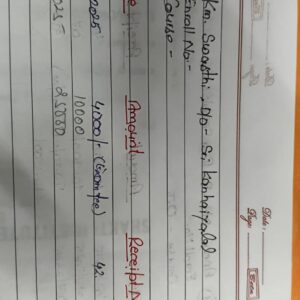 Date:
Page:
Km. Swasthi, D/o- Sri Kanhaiyalal
Enroll No:-
Course:-
Amount Receipt N
2025 4000/- (Exam fee) 42
10000
2025 25000